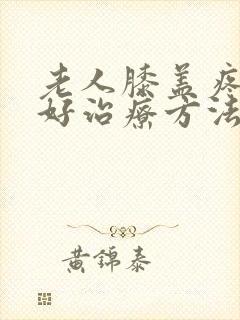 老人膝盖疼
好治疗方法
黄锦泰